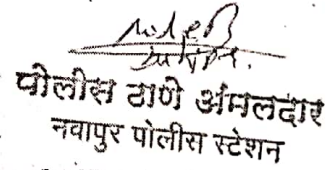 पोलीस ठाणे अंमलदार
नवापुर पोलीस स्टेशन